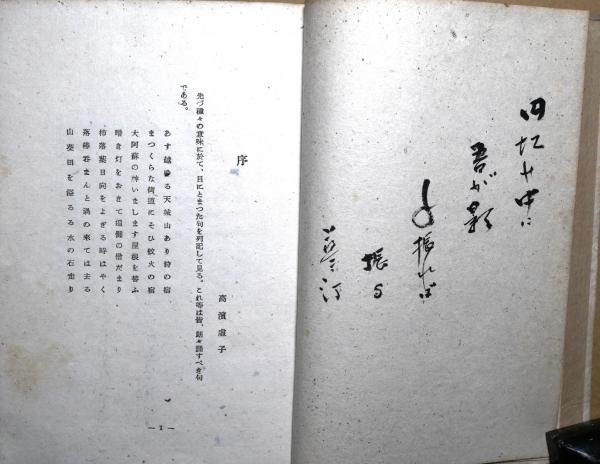 円虹の中に
吾が影
振れば
振る
蓼汀
序
高濱虛子
先づ種々の意味に於て、目にとまつた句を列記して見る。これ等は皆、朗々誦すべき句
である。
あす越ゆる天城山あり狩の宿
まつくらな街道にそひ蚊火の宿
大阿蘇の神いまします屋根を替ふ
暗き灯をおきて追儺の僧だまり
柿落葉日向をよぎる時はやく
落椿呑まんと渦の來ては去る
山葵田を溢るる水の石走り
— 1 —